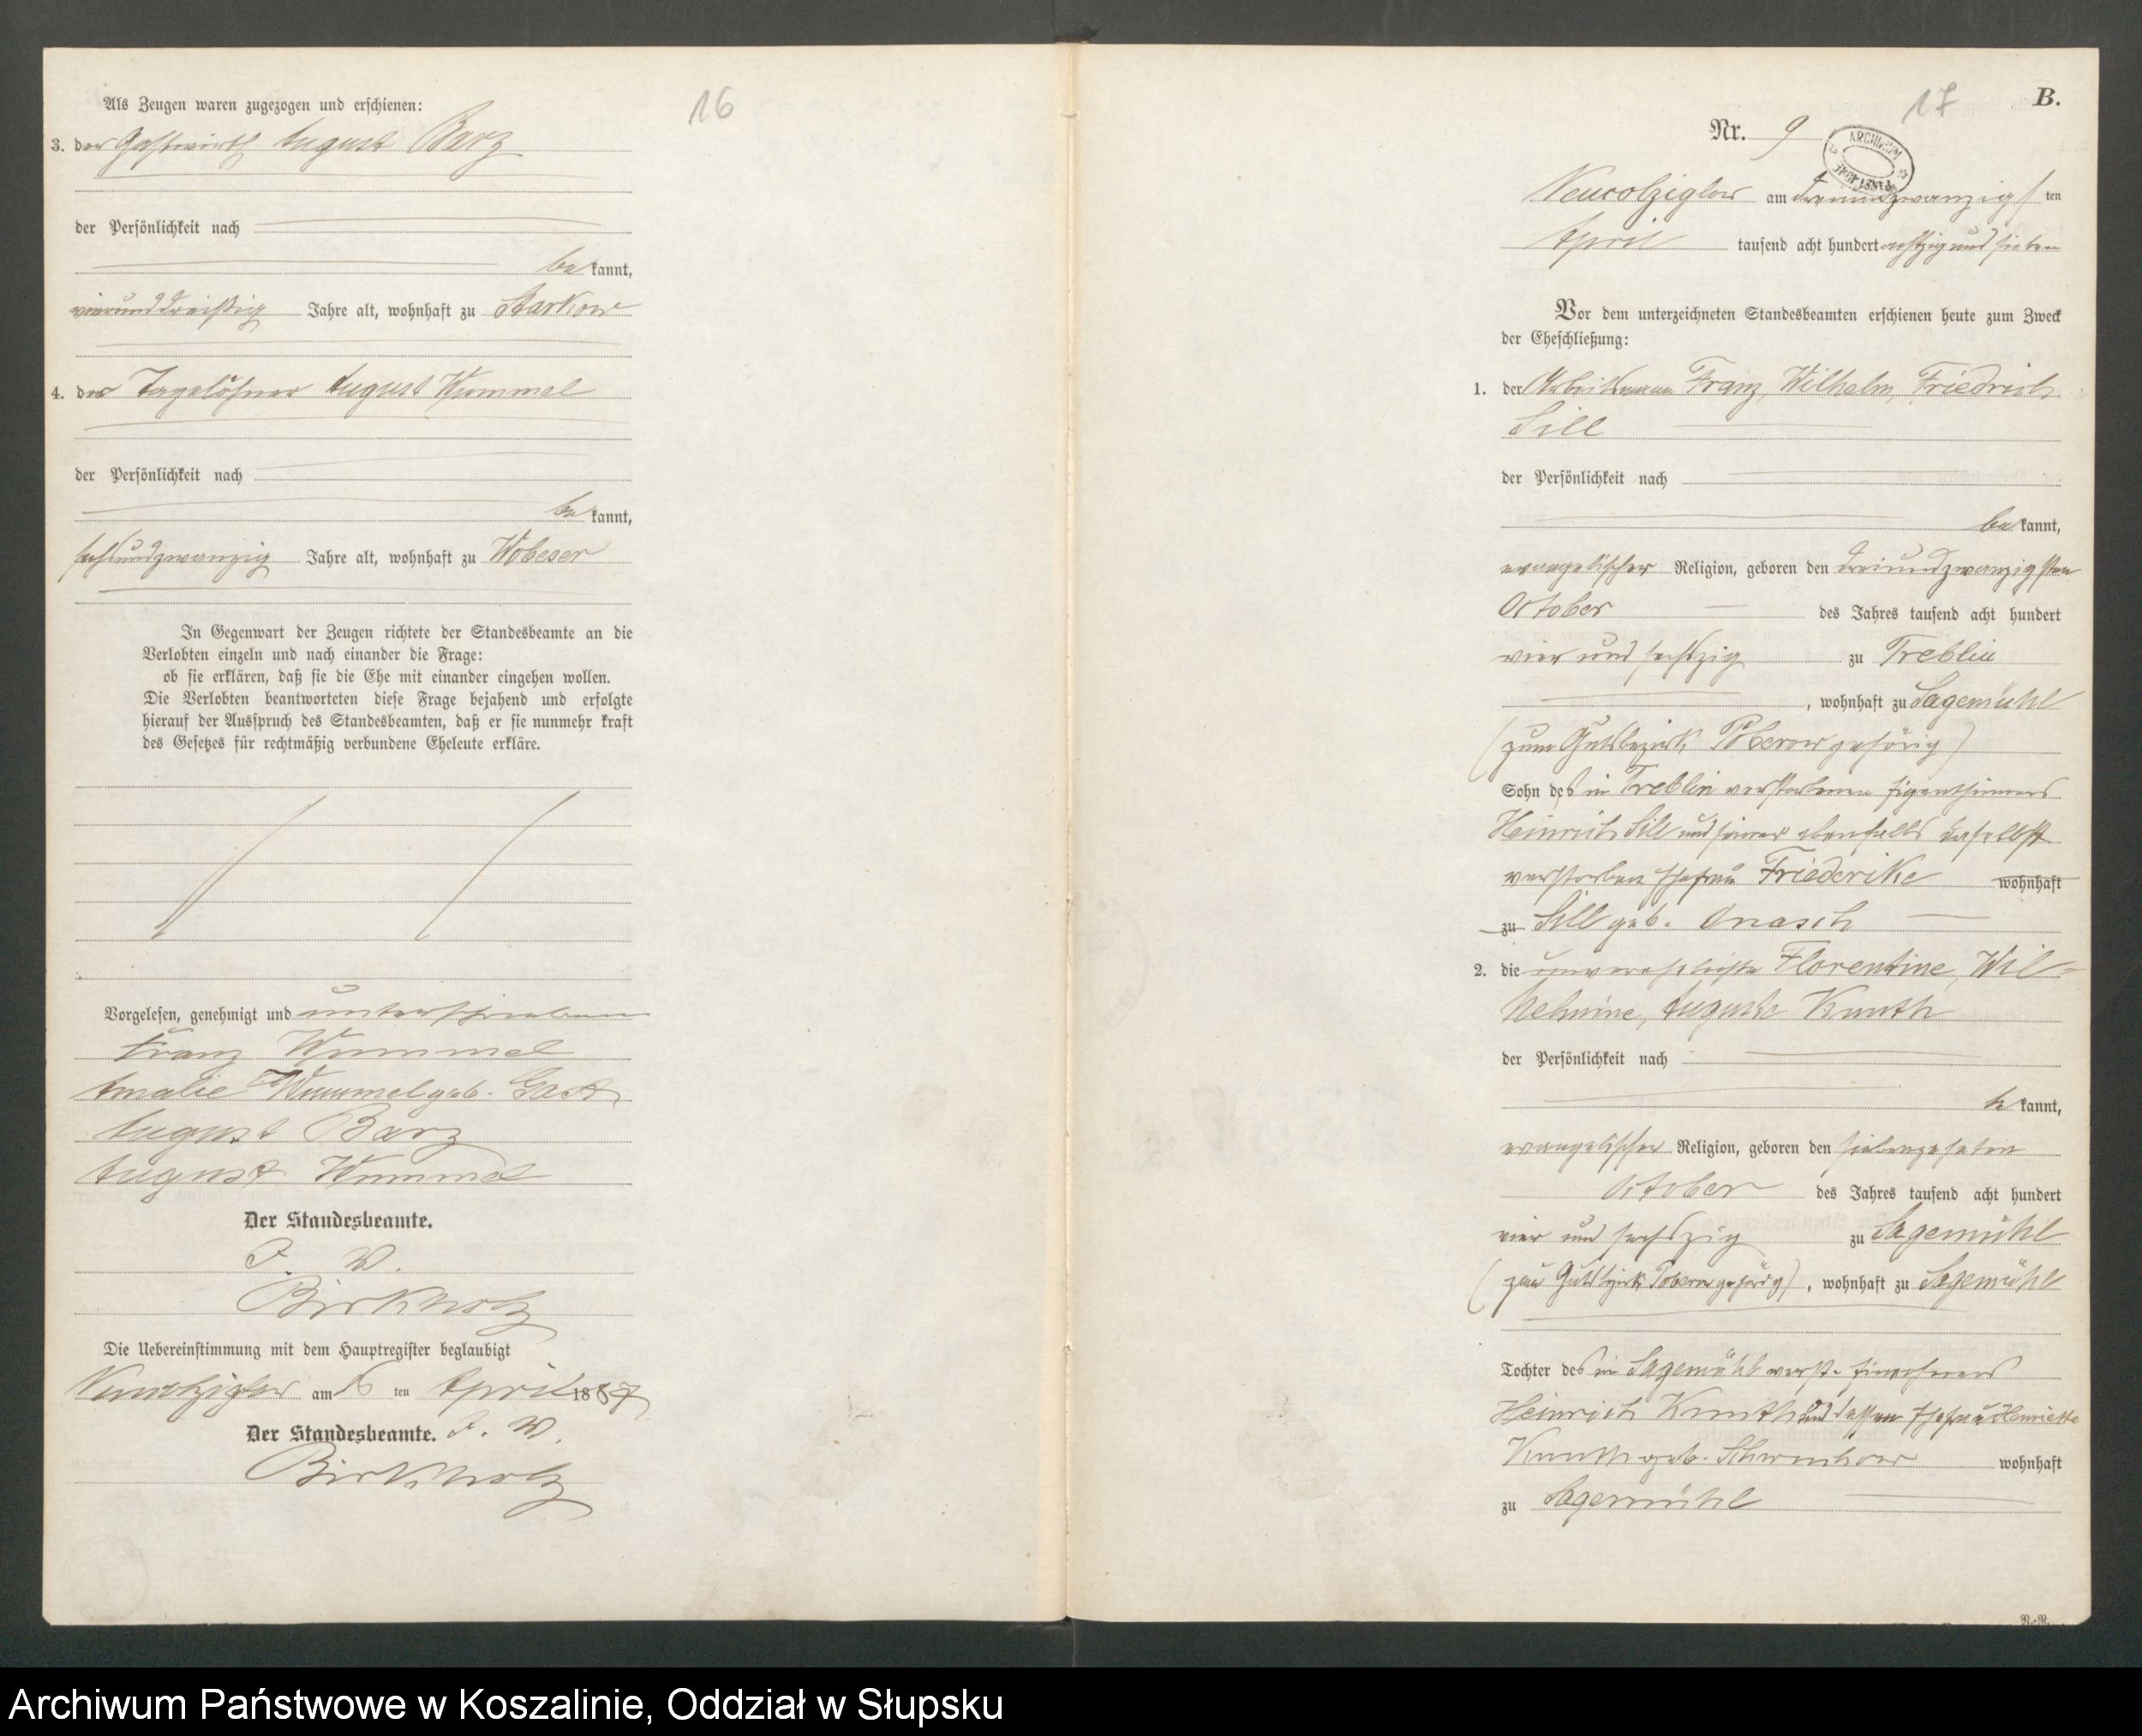 16
Als Zeugen waren zugezogen und erschienen:
3. der Gastwirth August Barz
der Persönlichkeit nach
be kannt,
vierunddreißig Jahre alt, wohnhaft zu Starkow
4. der Tagelöhner August Wummel
der Persönlichkeit nach
be kannt,
sechsundzwanzig Jahre alt, wohnhaft zu Wobeser
In Gegenwart der Zeugen richtete der Standesbeamte an die
Verlobten einzeln und nach einander die Frage:
ob sie erklären, daß sie die Ehe mit einander eingehen wollen.
Die Verlobten beantworteten diese Frage bejahend und erfolgte
hierauf der Ausspruch des Standesbeamten, daß er sie nunmehr kraft
des Gesetzes für rechtmäßig verbundene Eheleute erkläre.
Vorgelesen, genehmigt und unterschrieben
Franz Wummel
Amalie Wummel geb. Gast
August Barz
August Wummel
Der Standesbeamte.
J. V.
Birkholz
Die Uebereinstimmung mit dem Hauptregister beglaubigt
Neukolziglow am 16 ten April 1887
Der Standesbeamte. J. V.
Birkholz
17
B.
Nr. 9
ARCHIWUM
Neucolziglow am dreiundzwanzigs ten
April tausend acht hundert achtzig und sieben
Vor dem unterzeichneten Standesbeamten erschienen heute zum Zweck
der Eheschließung:
1. der Arbeitsmann Franz, Wilhelm, Friedrich
Sill
der Persönlichkeit nach
be kannt,
evangelischer Religion, geboren den dreiundzwanzigsten
October des Jahres tausend acht hundert
vier und sechszig zu Treblin
, wohnhaft zu Sagemühl
(zum Gutsbezirk Poberow gehörig)
Sohn des in Treblin verstorbenen Eigenthümers
Heinrich Sill und seiner ebenfalls daselbst
verstorben Ehefrau Friederike wohnhaft
zu Sill geb. Onasch
2. die unverehelichte Florentine, Wil-
helmine, Auguste Knuth
der Persönlichkeit nach
be kannt,
evangelischer Religion, geboren den siebenzehnten
October des Jahres tausend acht hundert
vier und sechszig zu Sagemühl
(zum Gutsbezirk Poberow gehörig), wohnhaft zu Sagemühl
Tochter des in Sagemühl verst. Einwohners
Heinrich Knuth und dessen Ehefrau Henriette
Knuth geb. wohnhaft
zu Sagemühl
R.-R.
Archiwum Państwowe w Koszalinie, Oddział w Słupsku